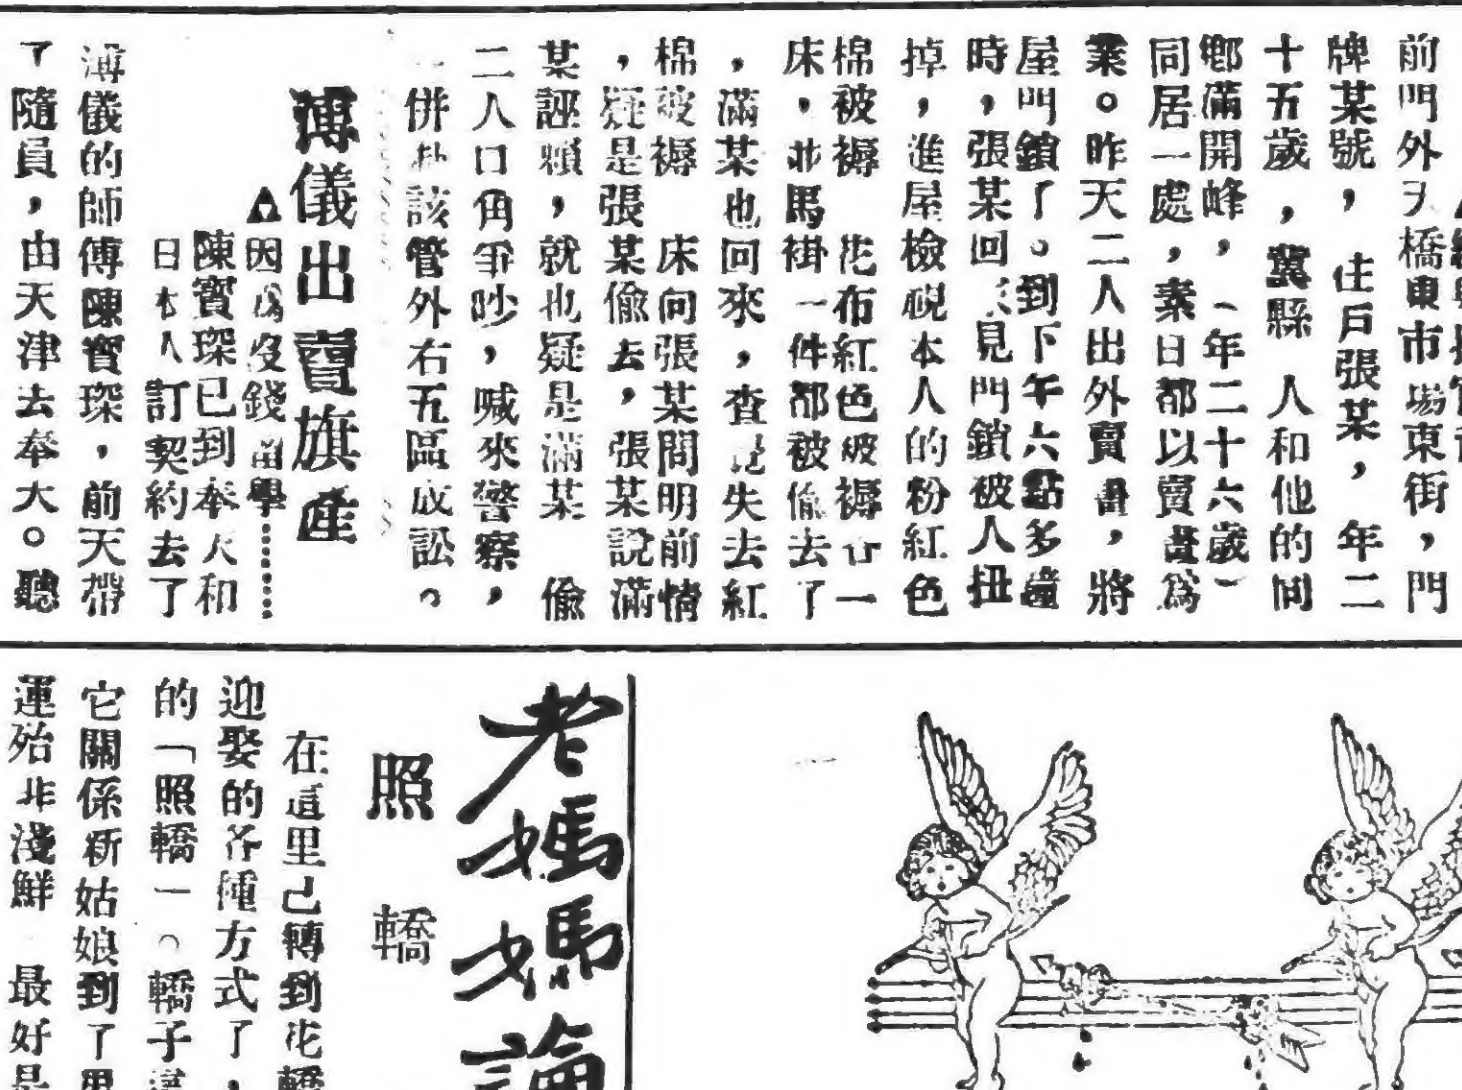 前門外天橋東市場東街，門
牌某號，住戶張某，年二
十五歲，冀縣人和他的同
鄉滿開峰，（年二十六歲）
同居一處，素日都以賣畫爲
業。昨天二人出外賣畫，將
屋門鎖了。到下午六點多鐘
時，張某回來見門鎖被人扭
掉，進屋檢視本人的粉紅色
棉被褥 花布紅色被褥各一
床，馬褂一件都被偷去了
，滿某也回來，查 失去紅
棉被褥 床向張某問明前情
，疑是張某偷去，張某說滿
某誣賴，就也疑是滿某 偷
二人口角爭吵，喊來警察，
併 該管外右五區成訟。
溥儀出賣旗產
▲因爲沒錢留學……
陳寶琛已到奉天和
日本人訂契約去了
溥儀的師傅陳寶琛，前天帶
了隨員，由天津去奉天。聽
老媽媽論
照轎
在這里已轉到花轎
迎娶的各種方式了，
的「照轎」。轎子
它關係新姑娘到了
運殆非淺鮮 最好是